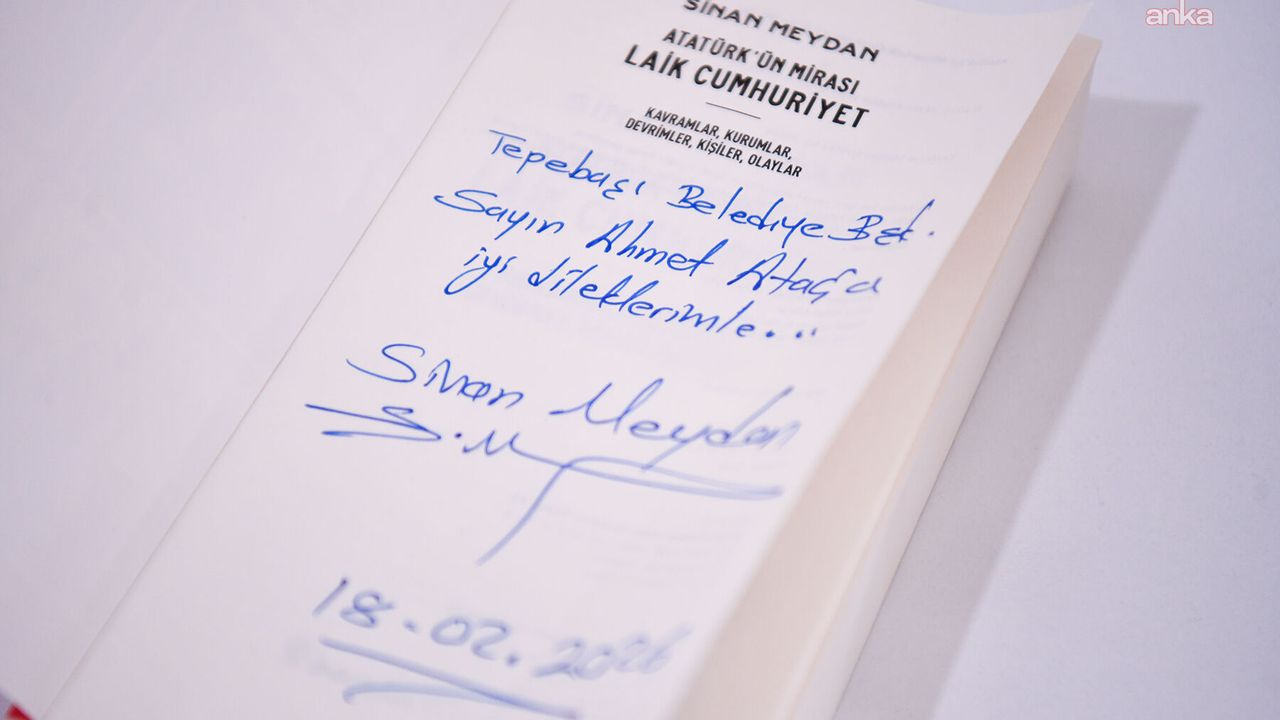 anka
SİNAN MEYDAN
ATATÜRK'ÜN MİRASI
LAİK CUMHURİYET
KAVRAMLAR, KURUMLAR,
DEVRİMLER, KİŞİLER, OLAYLAR
Tepebaşı Belediye Bşk.
Sayın Ahmet Ataç'a
iyi dileklerimle...
Sinan Meydan
S.M
18.02.2026